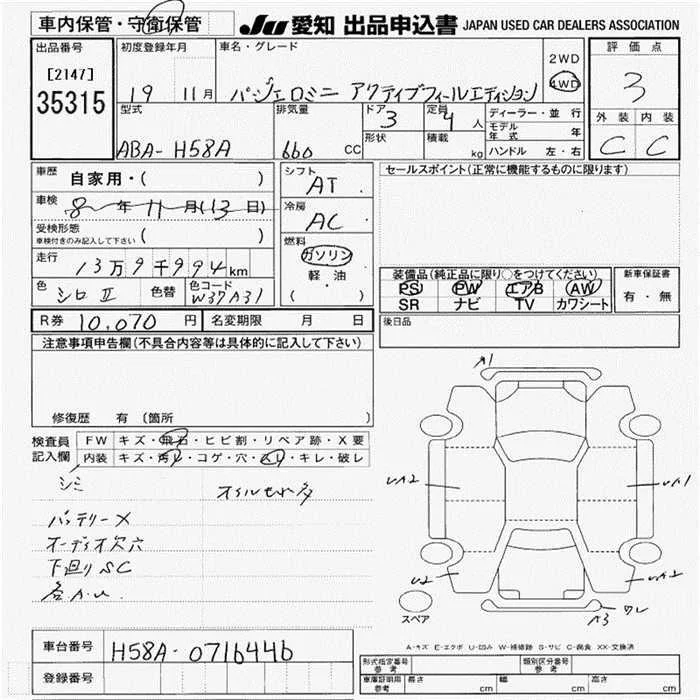 車内保管・守衛保管
JU 愛知 出品申込書 JAPAN USED CAR DEALERS ASSOCIATION
出品番号
[2147]
35315
初度登録年月
19 11月
車名・グレード
パジェロミニ アクティブフィールエディション
2WD
4WD
評価点
3
外装 内装
C C
型式
ABA-H58A
排気量
660 cc
ドア 3
形状
定員 4 人
積載 kg
ディーラー・並行
モデル年式 年
ハンドル 左・右
車歴 自家用・( )
車検 8年11月(13日)
受検形態
車検付きのみ記入して下さい ( )
走行 13万9千994km
色 シロII 色替 色コード W37A31
シフト AT
冷房 AC
燃料
ガソリン
軽油
( ・ )
セールスポイント(正常に機能するものに限ります)
装備品(純正品に限り○をつけてください)
PS PW エアB AW
SR ナビ TV カワシート
新車保証書
有・無
R券 10,070 円 名変期限 月 日
後日品
注意事項申告欄(不具合内容等は具体的に記入して下さい)
修復歴 有〔箇所
検査員記入欄
FW キズ・飛石・ヒビ割・リペア跡・X要
内装 キズ・汚レ・コゲ・穴・スレ・キレ・破レ
シミ
バッテリーX
オーディオ欠穴
下廻りSC
各A.U
A1
UA2
UA1
U2
UA2
ワレ
A3
スペア
A-キズ E-エクボ U-凹み W-補修跡 S-サビ C-腐食 XX-交換済
車台番号 H58A-0716446
登録番号
形式指定番号 参考
類別区分番号 参考
車庫証明用 参考 長さ cm 幅 cm 高さ cm